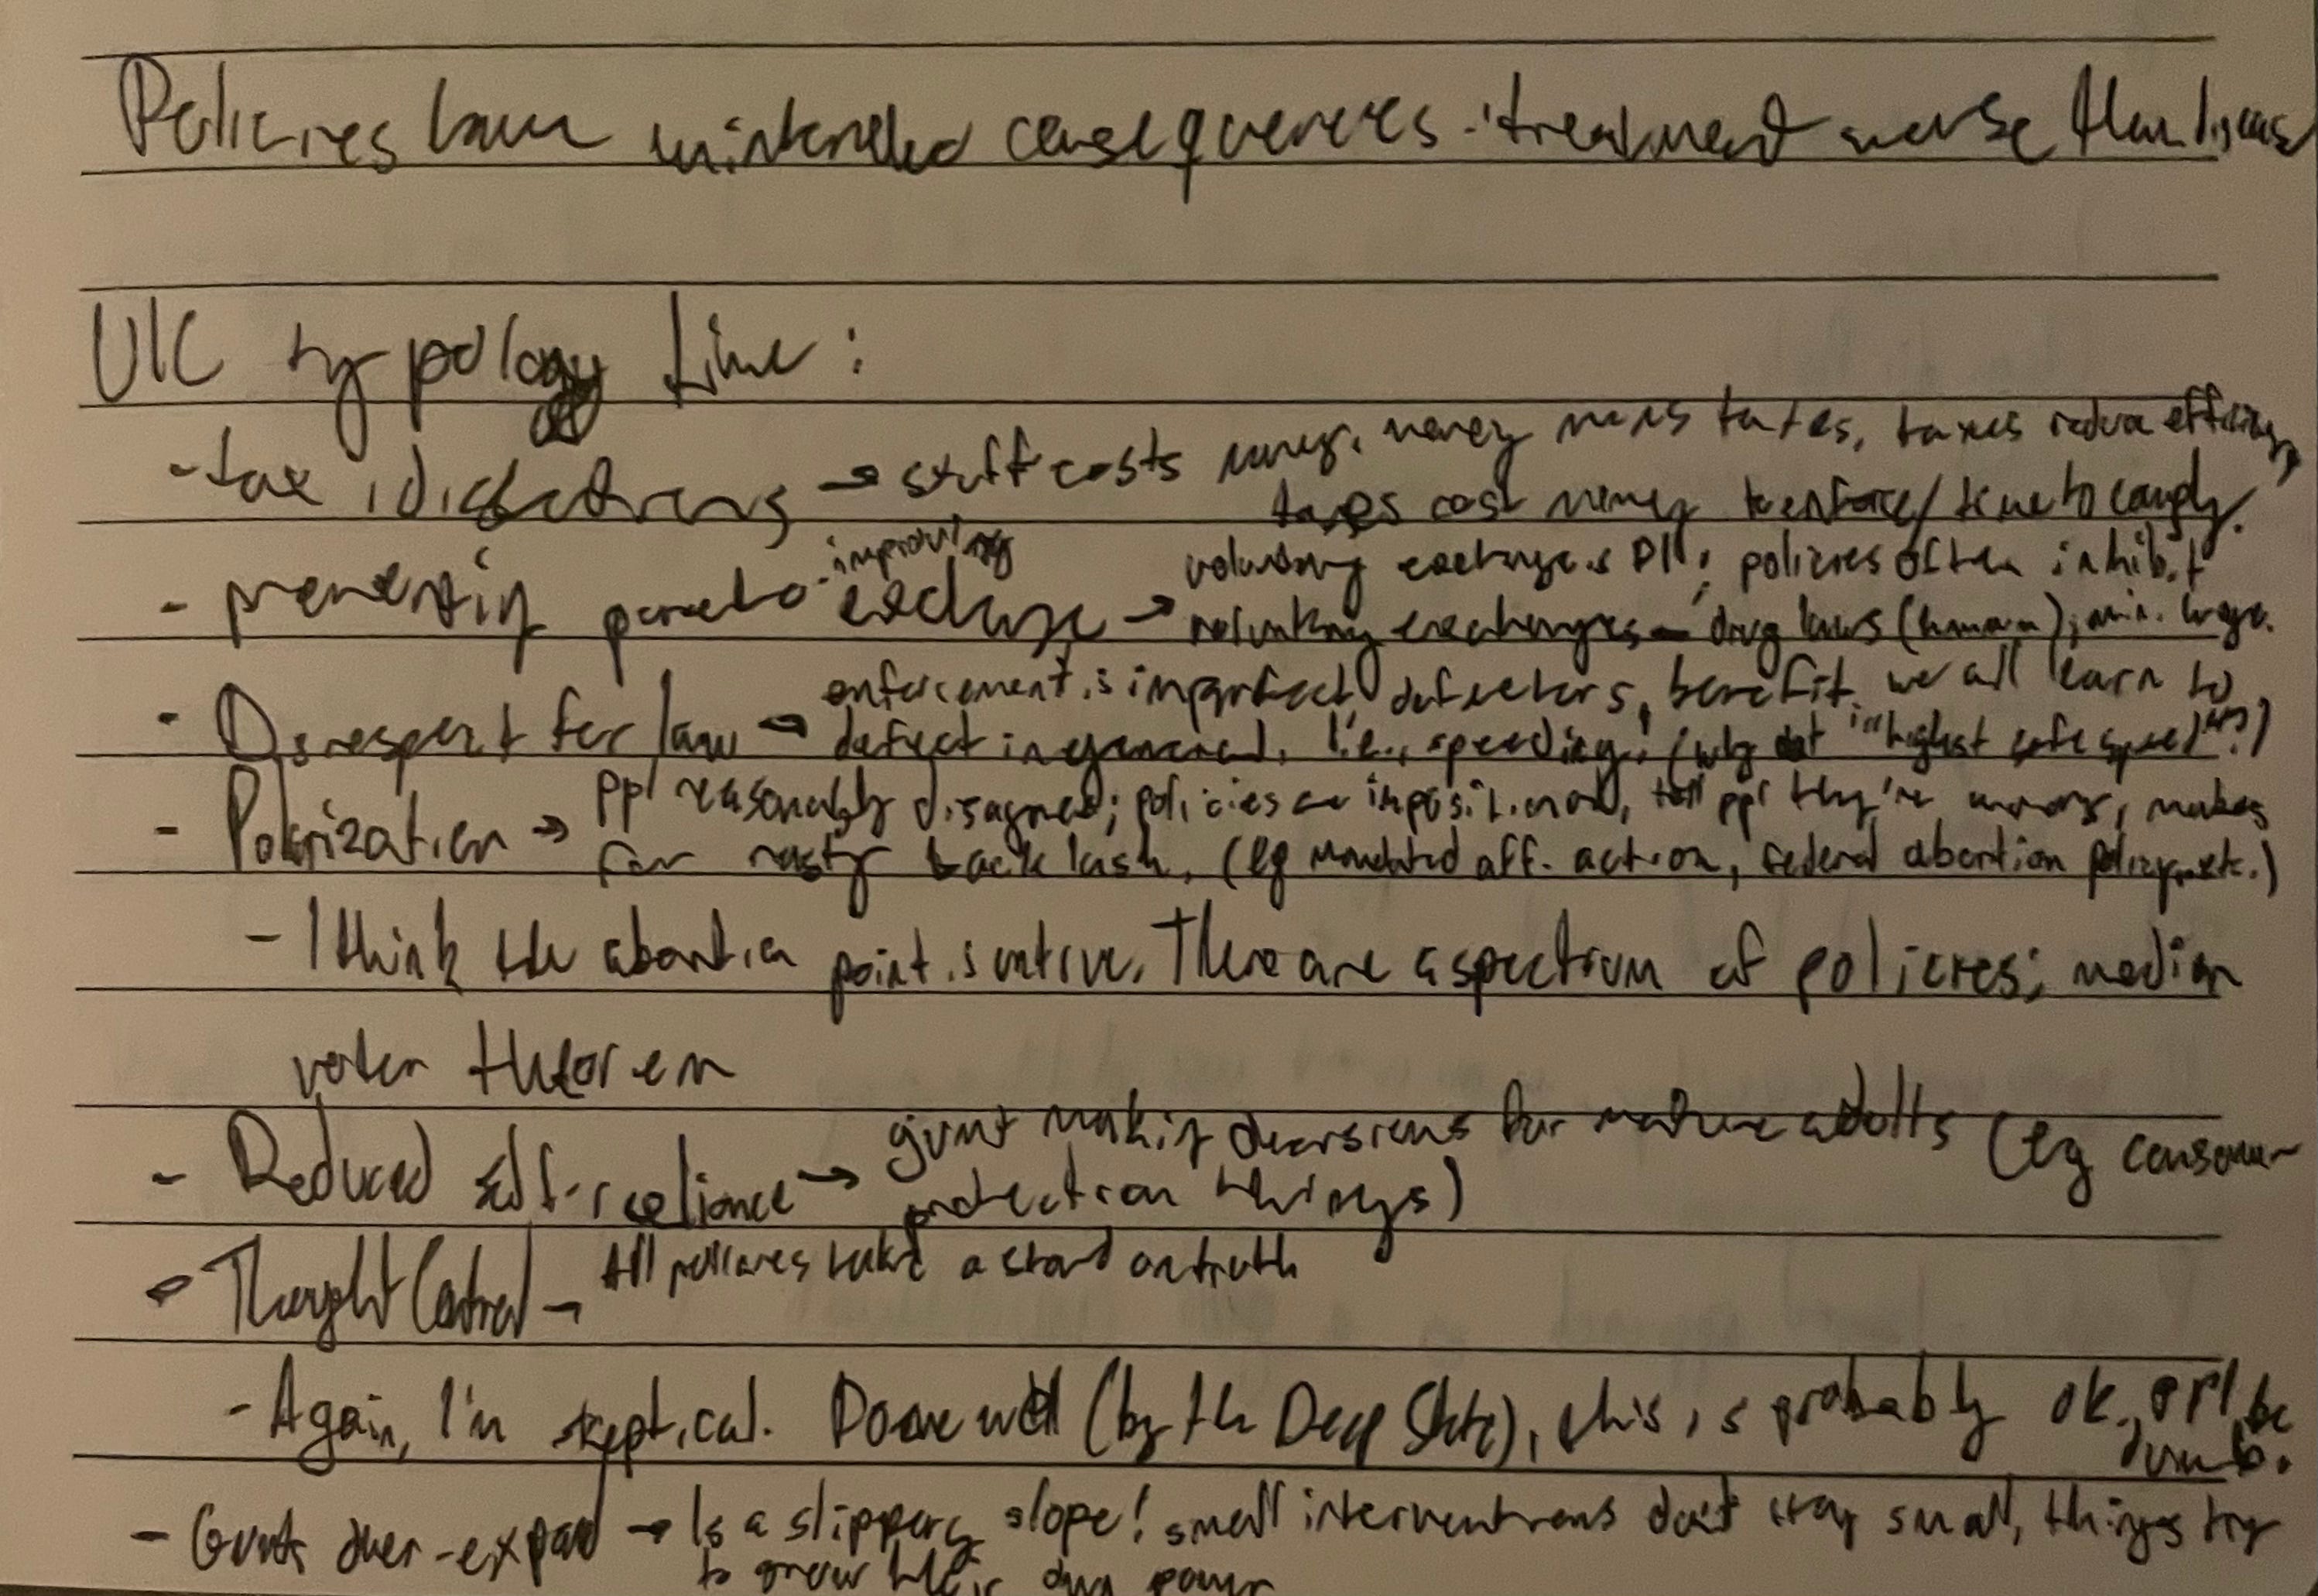 Policies have unintended consequences - treatment worse than disease
UIC typology time:
- tax distortions → stuff costs money, money means taxes, taxes reduce efficiency,
taxes cost money to enforce/time to comply.
- preventing pareto-improving exchange → voluntary exchange is PI; policies often inhibit
voluntary exchanges - drug laws (human), min. wage.
- Disrespect for law → enforcement is imperfect, defectors benefit, we all learn to
defect in general, i.e., speeding! (why not "highest safe speed"?)
- Polarization → ppl reasonably disagree; policies are impositional, tell ppl they're wrong, makes
for nasty backlash, (eg mandated aff. action, federal abortion policy, etc.)
- I think the abortion point is untrue. There are a spectrum of policies; median
voter theorem
- Reduced self-reliance → gvmt making decisions for mature adults (eg consumer
protection things)
- Thought Control → All policies take a stand on truth
- Again, I'm skeptical. Done well (by the Deep State), this is probably ok, ppl be
dumb.
- Gvmts over-expand → Is a slippery slope! small interventions don't stay small, things try
to grow their own power